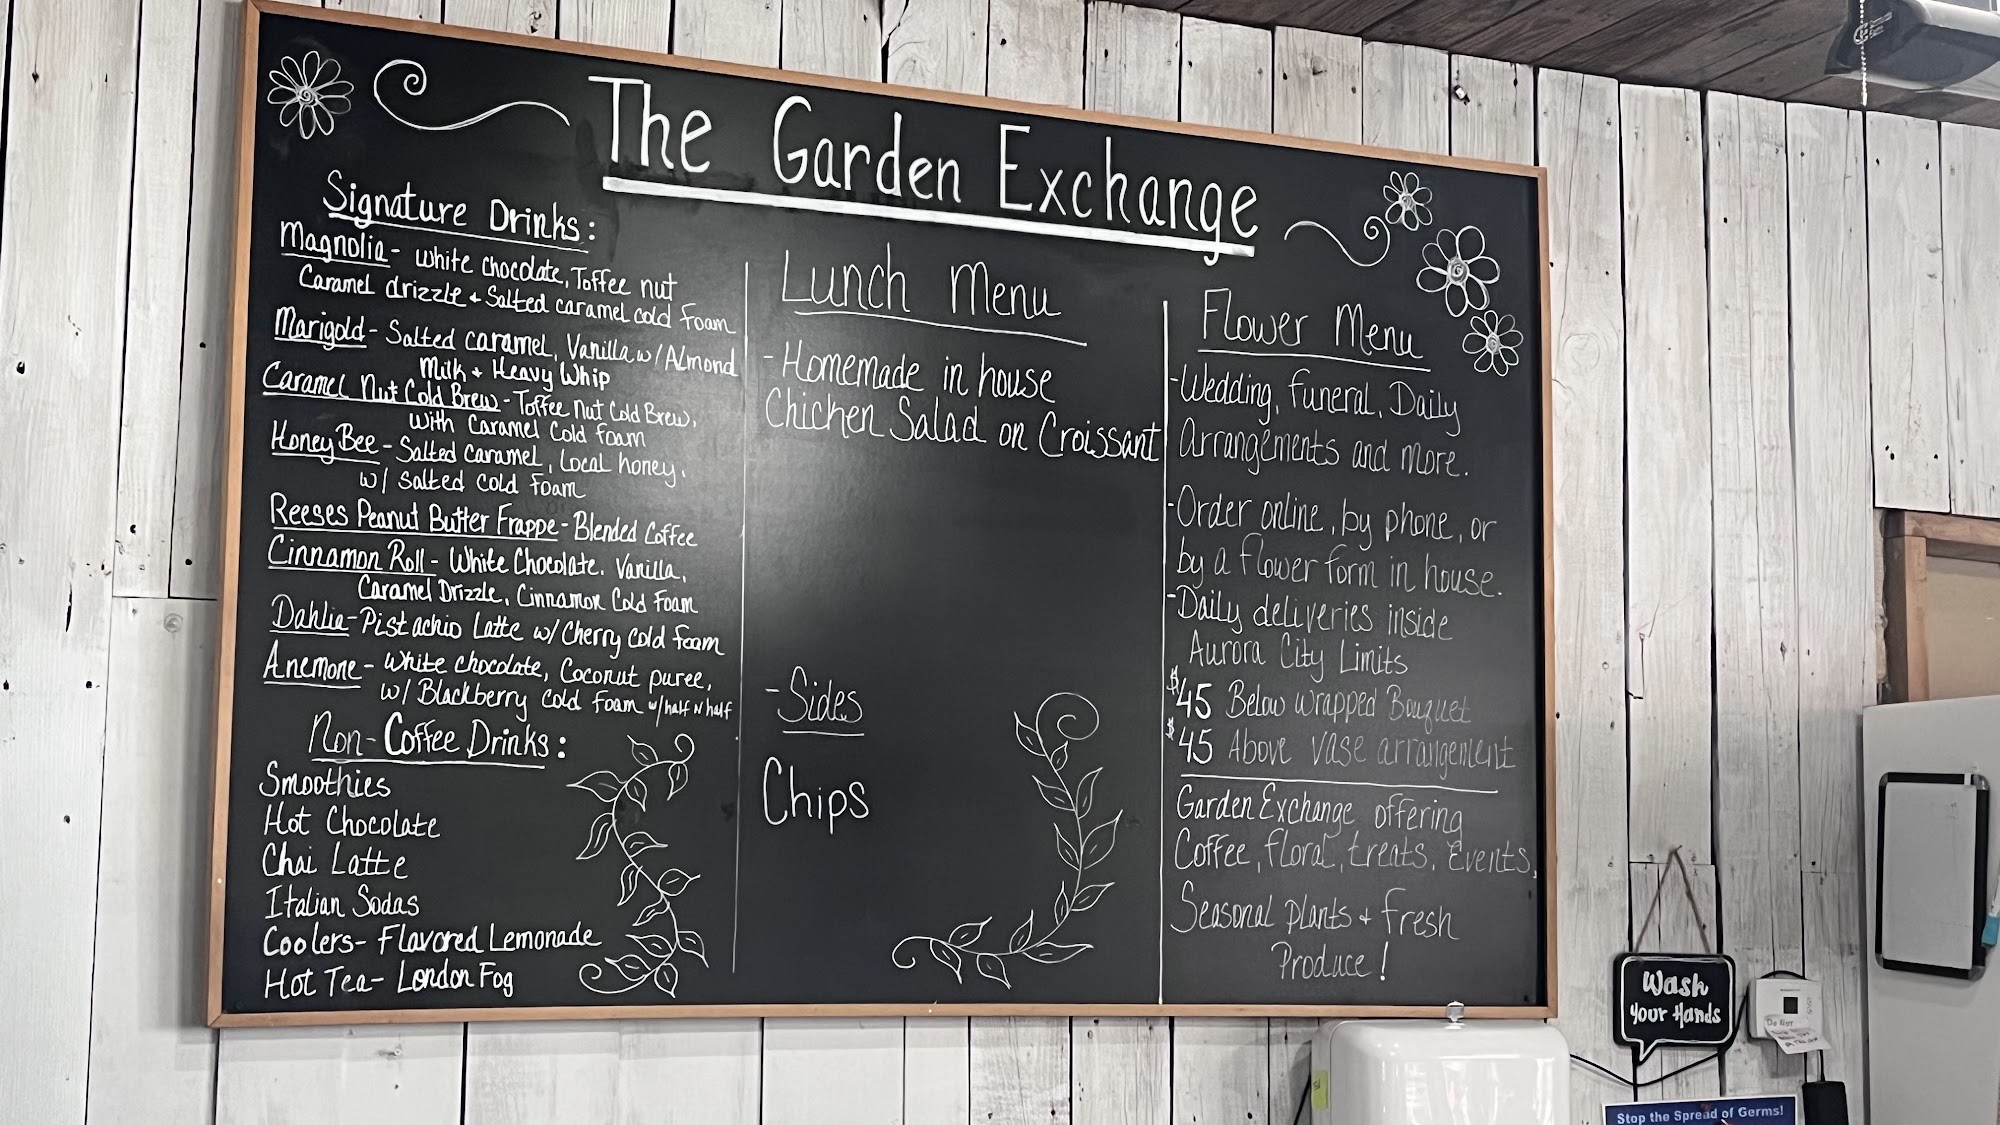 The Garden Exchange
Signature Drinks:
Magnolia- white chocolate, Toffee nut
Caramel drizzle + Salted caramel cold foam
Marigold- Salted caramel, Vanilla w/ Almond
Milk + Heavy Whip
Caramel Nut Cold Brew- Toffee Nut Cold Brew,
with Caramel Cold Foam
Honey Bee- Salted Caramel, Local honey,
w/ Salted Cold Foam
Reeses Peanut Butter Frappe- Blended Coffee
Cinnamon Roll- White Chocolate, Vanilla,
Caramel Drizzle, Cinnamon Cold Foam
Dahlia- Pistachio Latte w/ Cherry cold foam
Anemone- White chocolate, Coconut puree,
w/ Blackberry Cold Foam w/ half n half
Non-Coffee Drinks:
Smoothies
Hot Chocolate
Chai Latte
Italian Sodas
Coolers- Flavored Lemonade
Hot Tea- London Fog
Lunch Menu
- Homemade in house
Chicken Salad on Croissant
- Sides
Chips
Flower Menu
- Wedding, Funeral, Daily
Arrangements and more.
- Order online, by phone, or
by a flower form in house.
- Daily deliveries inside
Aurora City Limits
$45 Below wrapped Bouquet
$45 Above vase arrangement
Garden Exchange offering
Coffee, floral, treats, Events,
Seasonal plants + fresh
Produce!
Wash
Your Hands
Do Not
Stop the Spread of Germs!